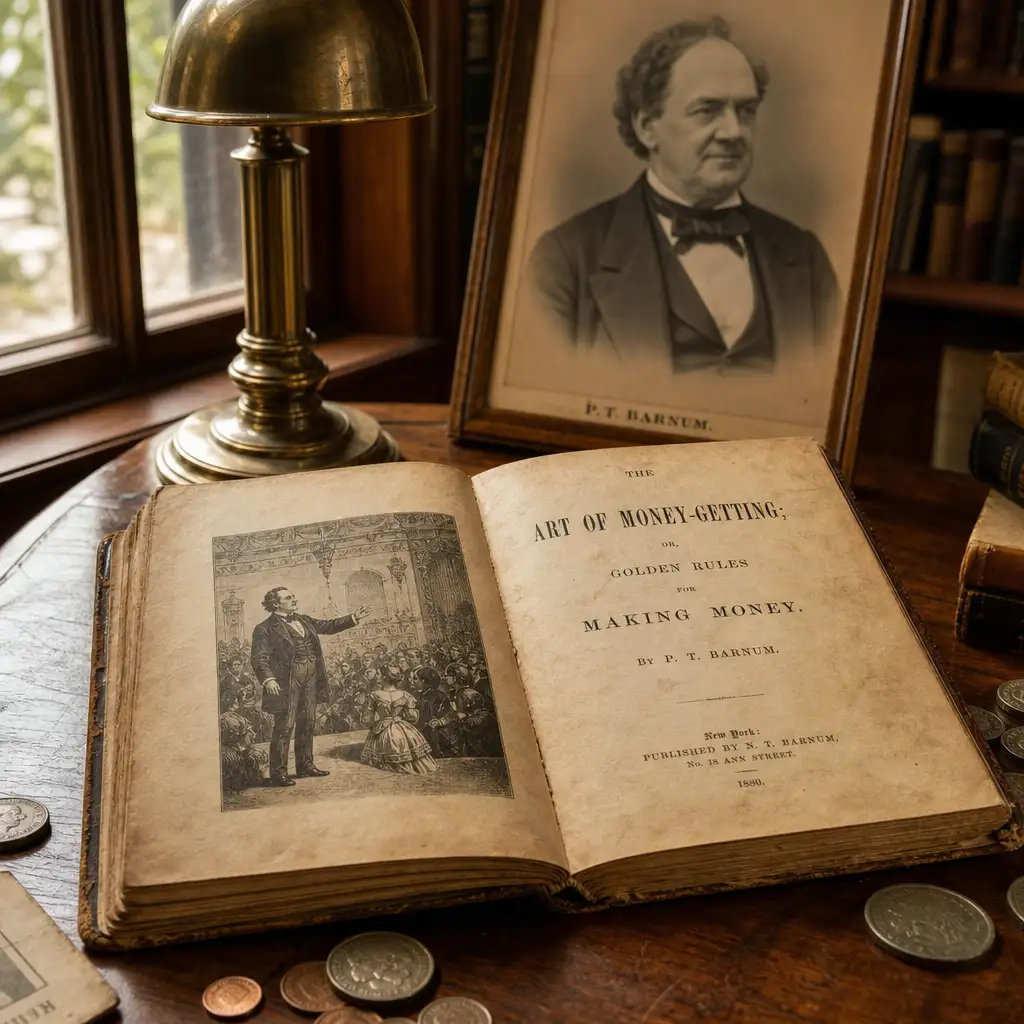 P. T. BARNUM.
THE
ART OF MONEY-GETTING;
OR,
GOLDEN RULES
FOR
MAKING MONEY.
BY P. T. BARNUM.
New York:
PUBLISHED BY N. T. BARNUM,
No. 18 ANN STREET.
1880.